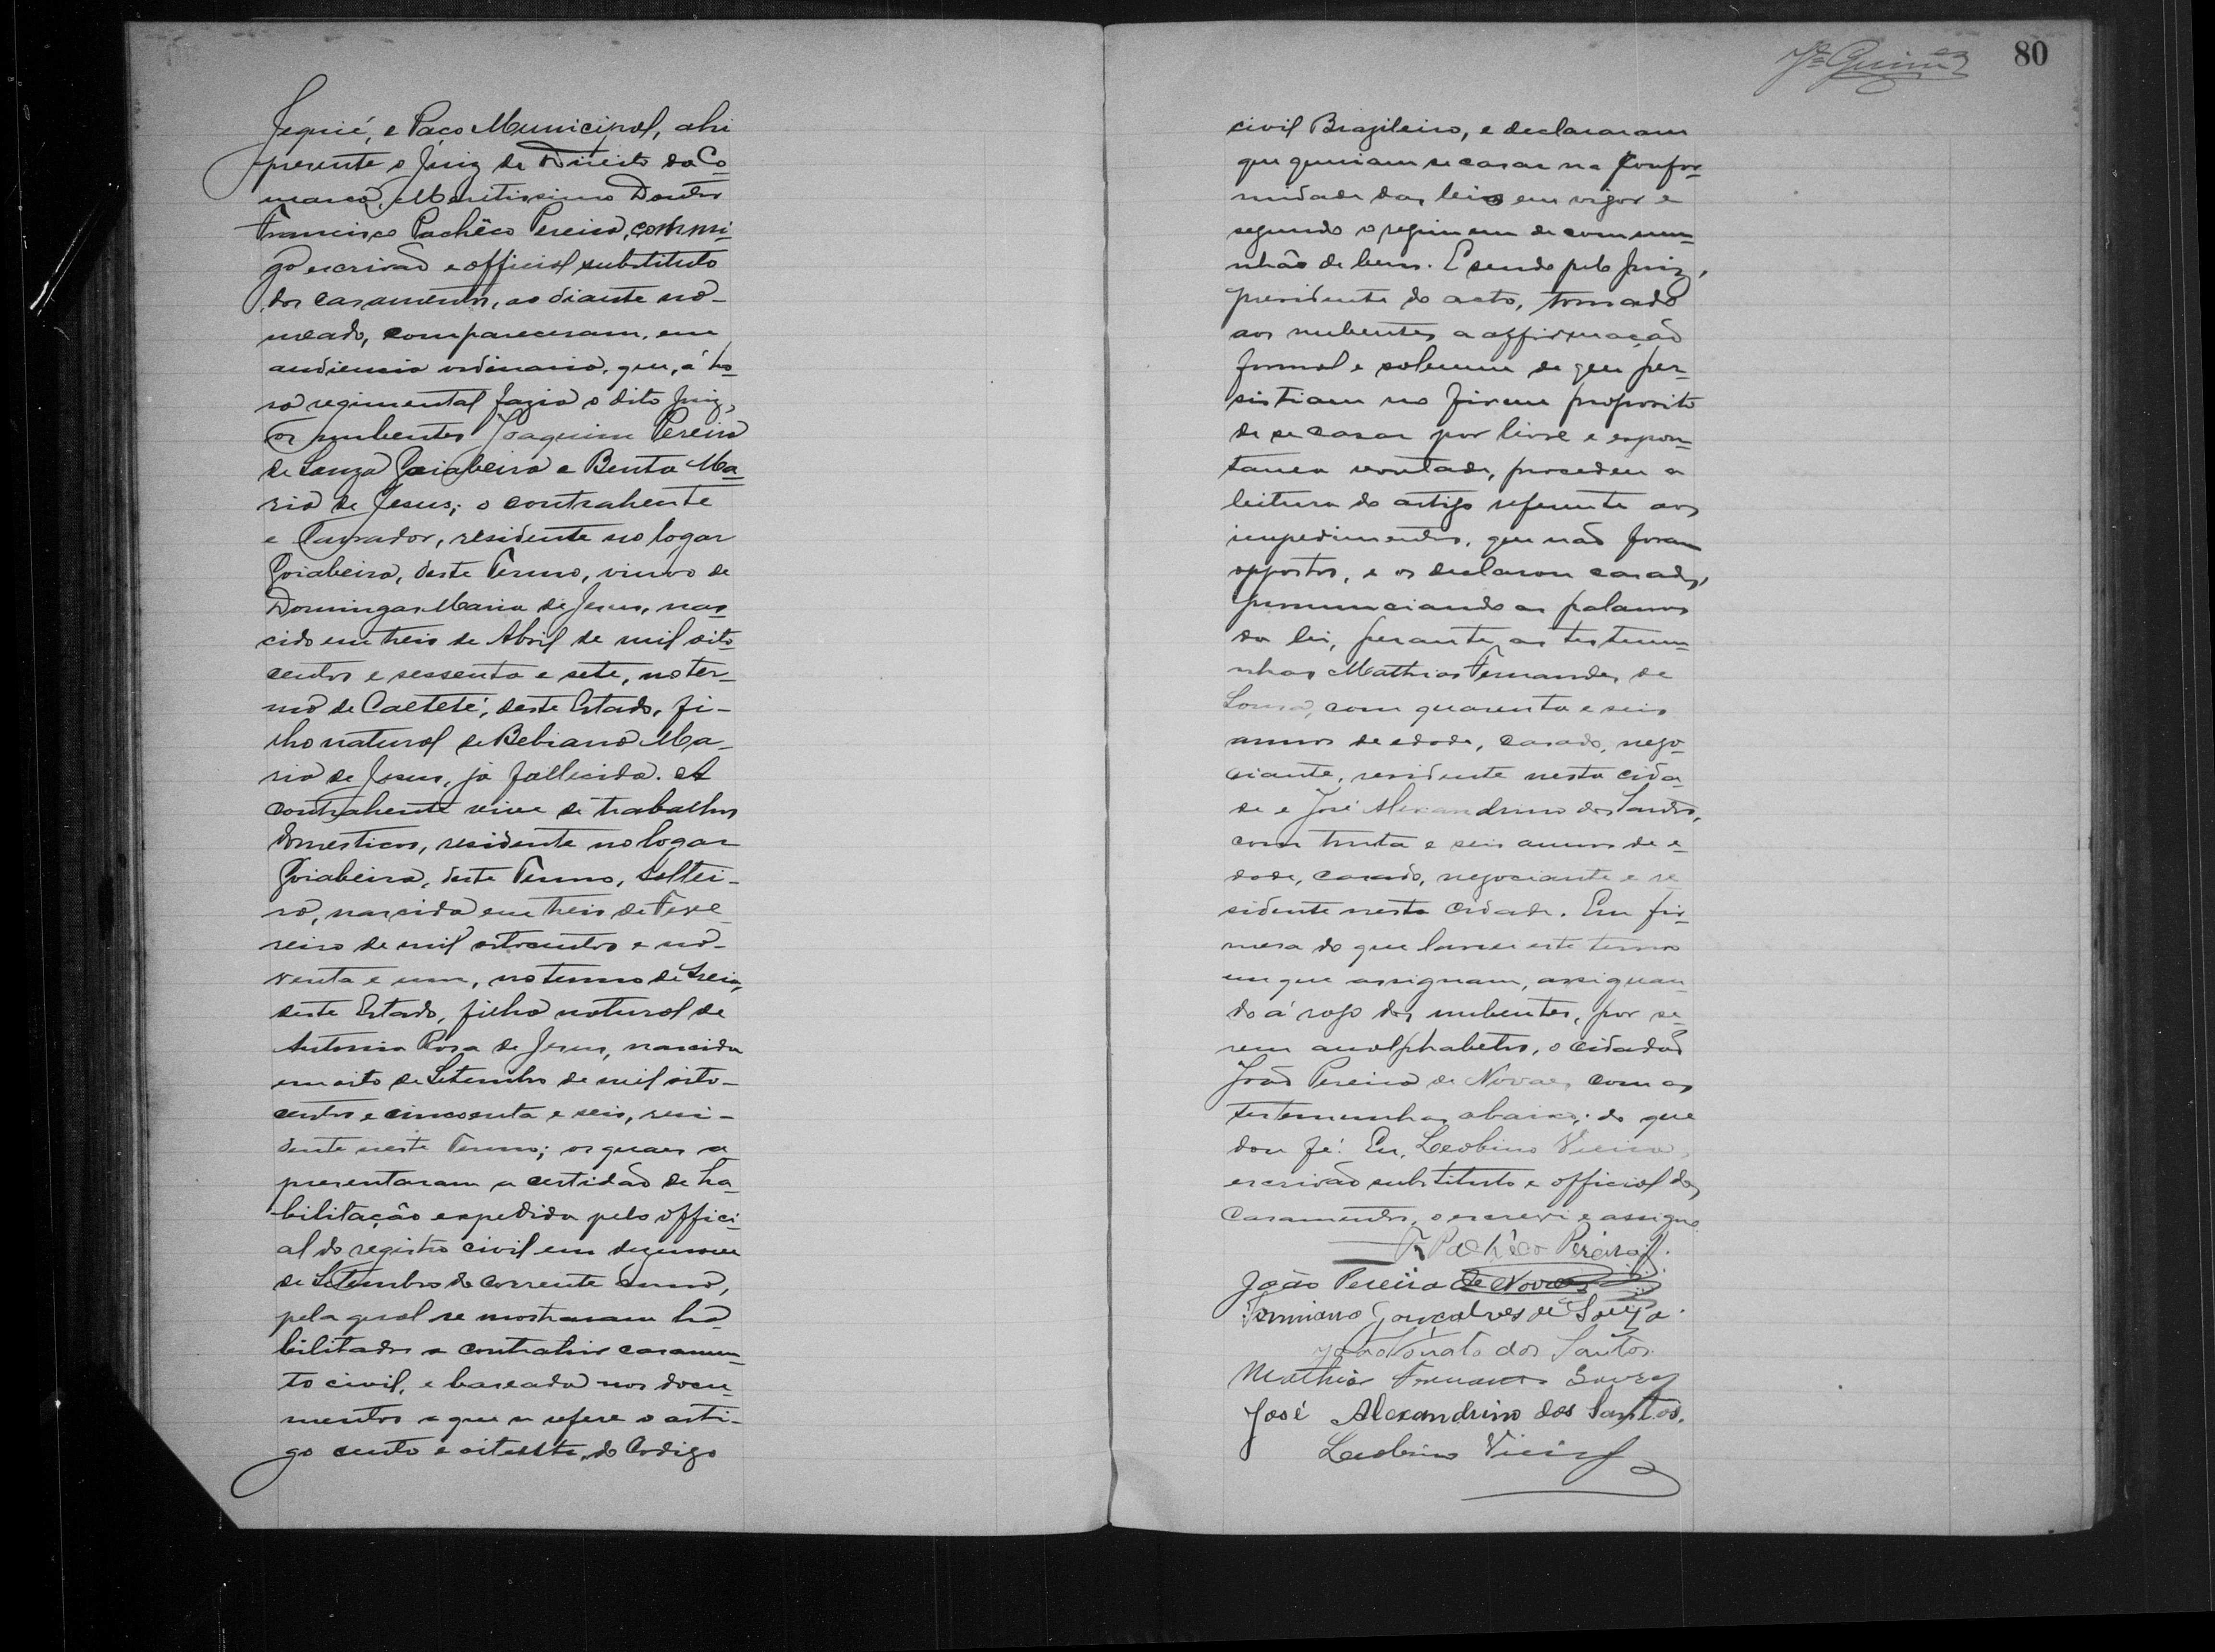 Jequié, e Paço Municipal, ahi
presente o Juiz de Direito da Co-
marca, Meritissimo Doutor
Francisco Pachêco Pereira, commi-
go escrivão e official substituto
dos casamentos, ao diante no-
meado, compareceram, em
audiencia ordinaria, que, á ho-
ra regimental fazia o dito Juiz,
os nubentes Joaquim Pereira
de Souza Goiabeira e Benta Ma-
ria de Jesus; o contrahente
e lavrador, residente no logar
Goiabeira, deste Termo, viuvo de
Domingas Maria de Jesus, nas-
cido em treis de Abril de mil oito
centos e sessenta e sete, no ter-
mo de Caeteté, deste Estado, fi-
lho natural de Bebiana Ma-
ria de Jesus, já fallecida. A
contrahente vive de trabalhos
domesticos, residente no logar
Goiabeira, deste Termo, soltei-
ra, nascida em treis de Feve-
reiro de mil oitocentos e no-
venta e um, no termo de
deste Estado, filha natural de
Antonia Rosa de Jesus, nascida
em oito de Setembro de mil oito-
centos e cincoenta e seis, resi-
dente neste Termo; os quaes a
presentaram a certidão de ha-
bilitação expedida pelo offici-
al do registro civil em dezenove
de Setembro do corrente anno,
pela qual se mostraram ha-
bilitados a contrahir casamen-
to civil, e baseada nos docu-
mentos a que se refere o arti-
go cento e oitenta, do Codigo
80
civil Brazileiro, e declararam
que queriam se casar na confor-
midade das leis em vigor e
segundo o regimem de commu-
nhão de bens. E sendo pelo Juiz,
presidente do acto, tomado
aos nubentes a affirmação
formal e solemne de que per-
sistiam no firme proposito
de se casar por livre e espon-
tanea vontade, procedeu a
leitura do artigo referente aos
impedimentos, que não foram
oppostos, e os declarou casados,
pronunciando as palavras
da lei, perante as testemu-
nhas Mathias Fernandes de
Souza, com quarenta e seis
annos de edade, casado, nego-
ciante, residente nesta cida-
de e José Alexandrino dos Santos,
com trinta e seis annos de e-
dade, casado, negociante e re-
sidente nesta cidade. Em fir-
meza do que lavrei este termo
em que assignam, assignan-
do á rogo dos nubentes, por se-
rem analphabetos, o cidadão
João Pereira de Novaes com as
testemunhas abaixo; do que
dou fé. Eu, Leobino Vieira,
escrivão substituto e official dos
casamentos, o escrevi e assigno
F. Pachêco Pereira
João Pereira de Novaes
Firmiano Gonçalves de Souza.
João Donato dos Santos
Mathias Fernandes Souza
José Alexandrino dos Santos.
Leobino Vieira